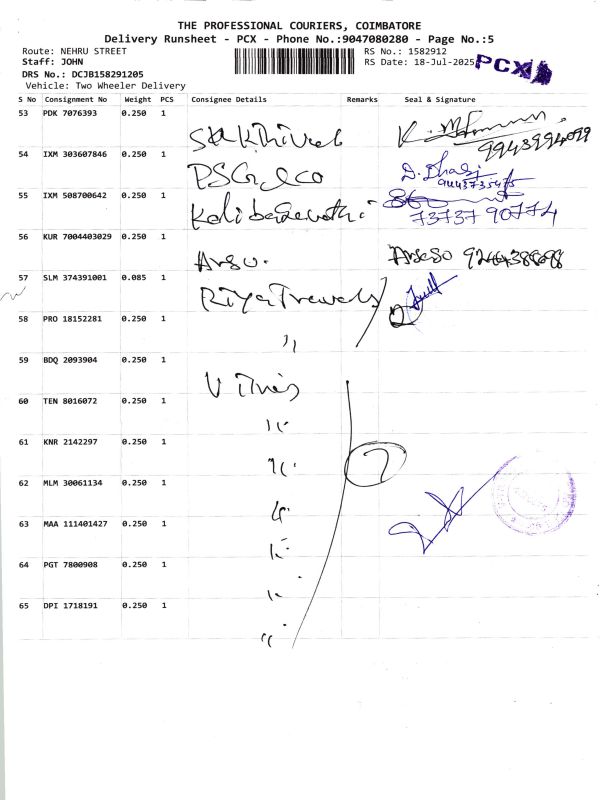 THE PROFESSIONAL COURIERS, COIMBATORE
Delivery Runsheet - PCX - Phone No.:9047080280 - Page No.:5
Route: NEHRU STREET RS No.: 1582912
Staff: JOHN RS Date: 18-Jul-2025 PCX
DRS No.: DCJB158291205
Vehicle: Two Wheeler Delivery
S No Consignment No Weight PCS Consignee Details Remarks Seal & Signature
53 PDK 7076393 0.250 1
9943994099
54 IXM 303607846 0.250 1 PSG & co D. Dhasi
55 IXM 508700642 0.250 1
73737 90774
56 KUR 7004403029 0.250 1 Arso.
57 SLM 374391001 0.085 1 Riya Travels
58 PRO 18152281 0.250 1 "
59 BDQ 2093904 0.250 1 V
60 TEN 8016072 0.250 1 "
61 KNR 2142297 0.250 1 " 7
62 MLM 30061134 0.250 1 "
63 MAA 111401427 0.250 1 "
64 PGT 7800908 0.250 1 "
65 DPI 1718191 0.250 1 "